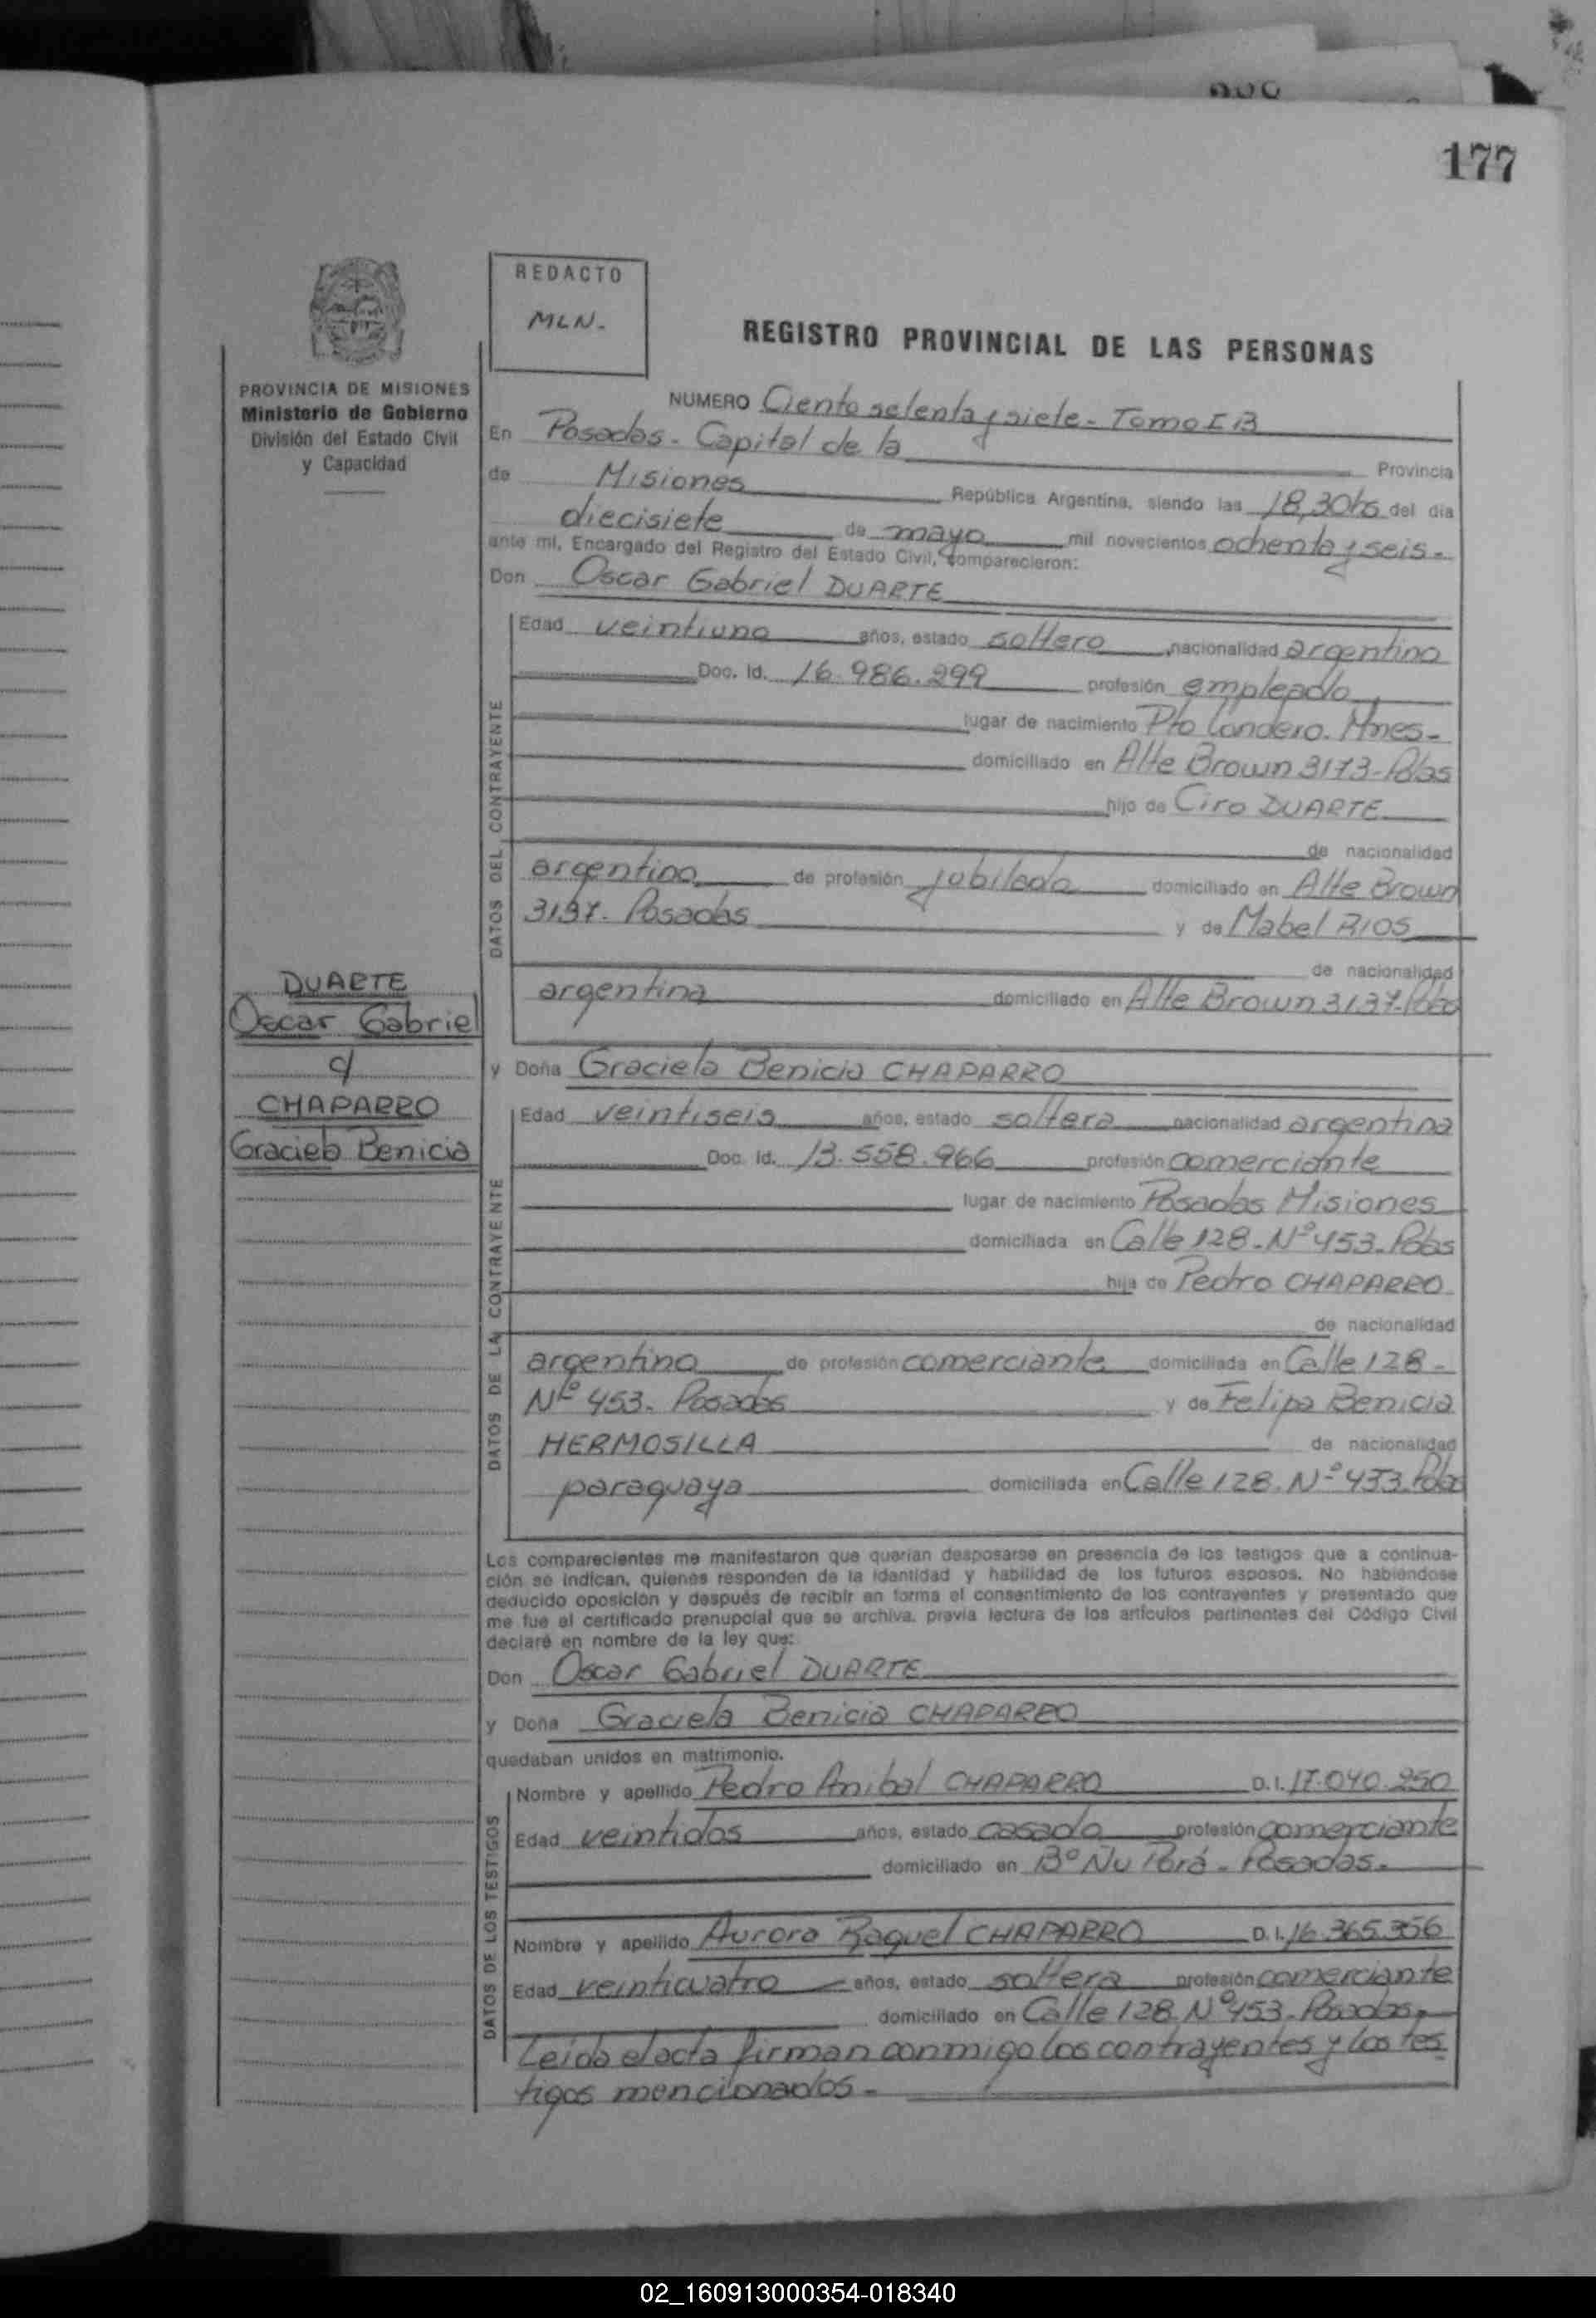 177
REDACTO
MLN.-
REGISTRO PROVINCIAL DE LAS PERSONAS
PROVINCIA DE MISIONES
Ministerio de Gobierno
División del Estado Civil
y Capacidad
NUMERO Ciento setenta y siete - Tomo I B
En Posadas - Capital de la Provincia
de Misiones República Argentina, siendo las 18,30hs del día
diecisiete de mayo mil novecientos ochenta y seis.-
ante mí, Encargado del Registro del Estado Civil, comparecieron:
Don Oscar Gabriel DUARTE
DATOS DEL CONTRAYENTE
Edad veintiuno años, estado soltero nacionalidad argentino
Doc. Id. 16.986.299 profesión empleado
lugar de nacimiento Pto Mnes-
domiciliado en Alte Brown 3173-Pdas
hijo de Ciro DUARTE
de nacionalidad
argentino de profesión jubilado domiciliado en Alte Brown
3137. Posadas y de Mabel RIOS
de nacionalidad
argentina domiciliado en Alte Brown 3137-Pdas
DUARTE
Oscar Gabriel
c/
CHAPARRO
Graciela Benicia
y Doña Graciela Benicia CHAPARRO
DATOS DE LA CONTRAYENTE
Edad veintiseis años, estado soltera nacionalidad argentina
Doc. Id. 13.558.966 profesión comerciante
lugar de nacimiento Posadas Misiones
domiciliada en Calle 128-Nº 453-Pdas
hija de Pedro CHAPARRO
de nacionalidad
argentino de profesión comerciante domiciliada en Calle 128-
Nº 453- Posadas y de Felipa Benicia
HERMOSILLA de nacionalidad
paraguaya domiciliada en Calle 128. Nº 453-Pdas
Los comparecientes me manifestaron que querían desposarse en presencia de los testigos que a continua-
ción se indican, quienes responden de la identidad y habilidad de los futuros esposos. No habiéndose
deducido oposición y después de recibir en forma el consentimiento de los contrayentes y presentado que
me fue el certificado prenupcial que se archiva, previa lectura de los artículos pertinentes del Código Civil
declaré en nombre de la ley que:
Don Oscar Gabriel DUARTE
y Doña Graciela Benicia CHAPARRO
quedaban unidos en matrimonio.
DATOS DE LOS TESTIGOS
Nombre y apellido Pedro Anibal CHAPARRO D.I. 17.040.250
Edad veintidos años, estado casado profesión comerciante
domiciliado en Bº Ñu Porá - Posadas-
Nombre y apellido Aurora Raquel CHAPARRO D.I. 16.365.356
Edad veinticuatro años, estado soltera profesión comerciante
domiciliado en Calle 128 Nº 453-Posadas-
Leida el acta firman conmigo los contrayentes y los tes
tigos mencionados-
02_160913000354-018340